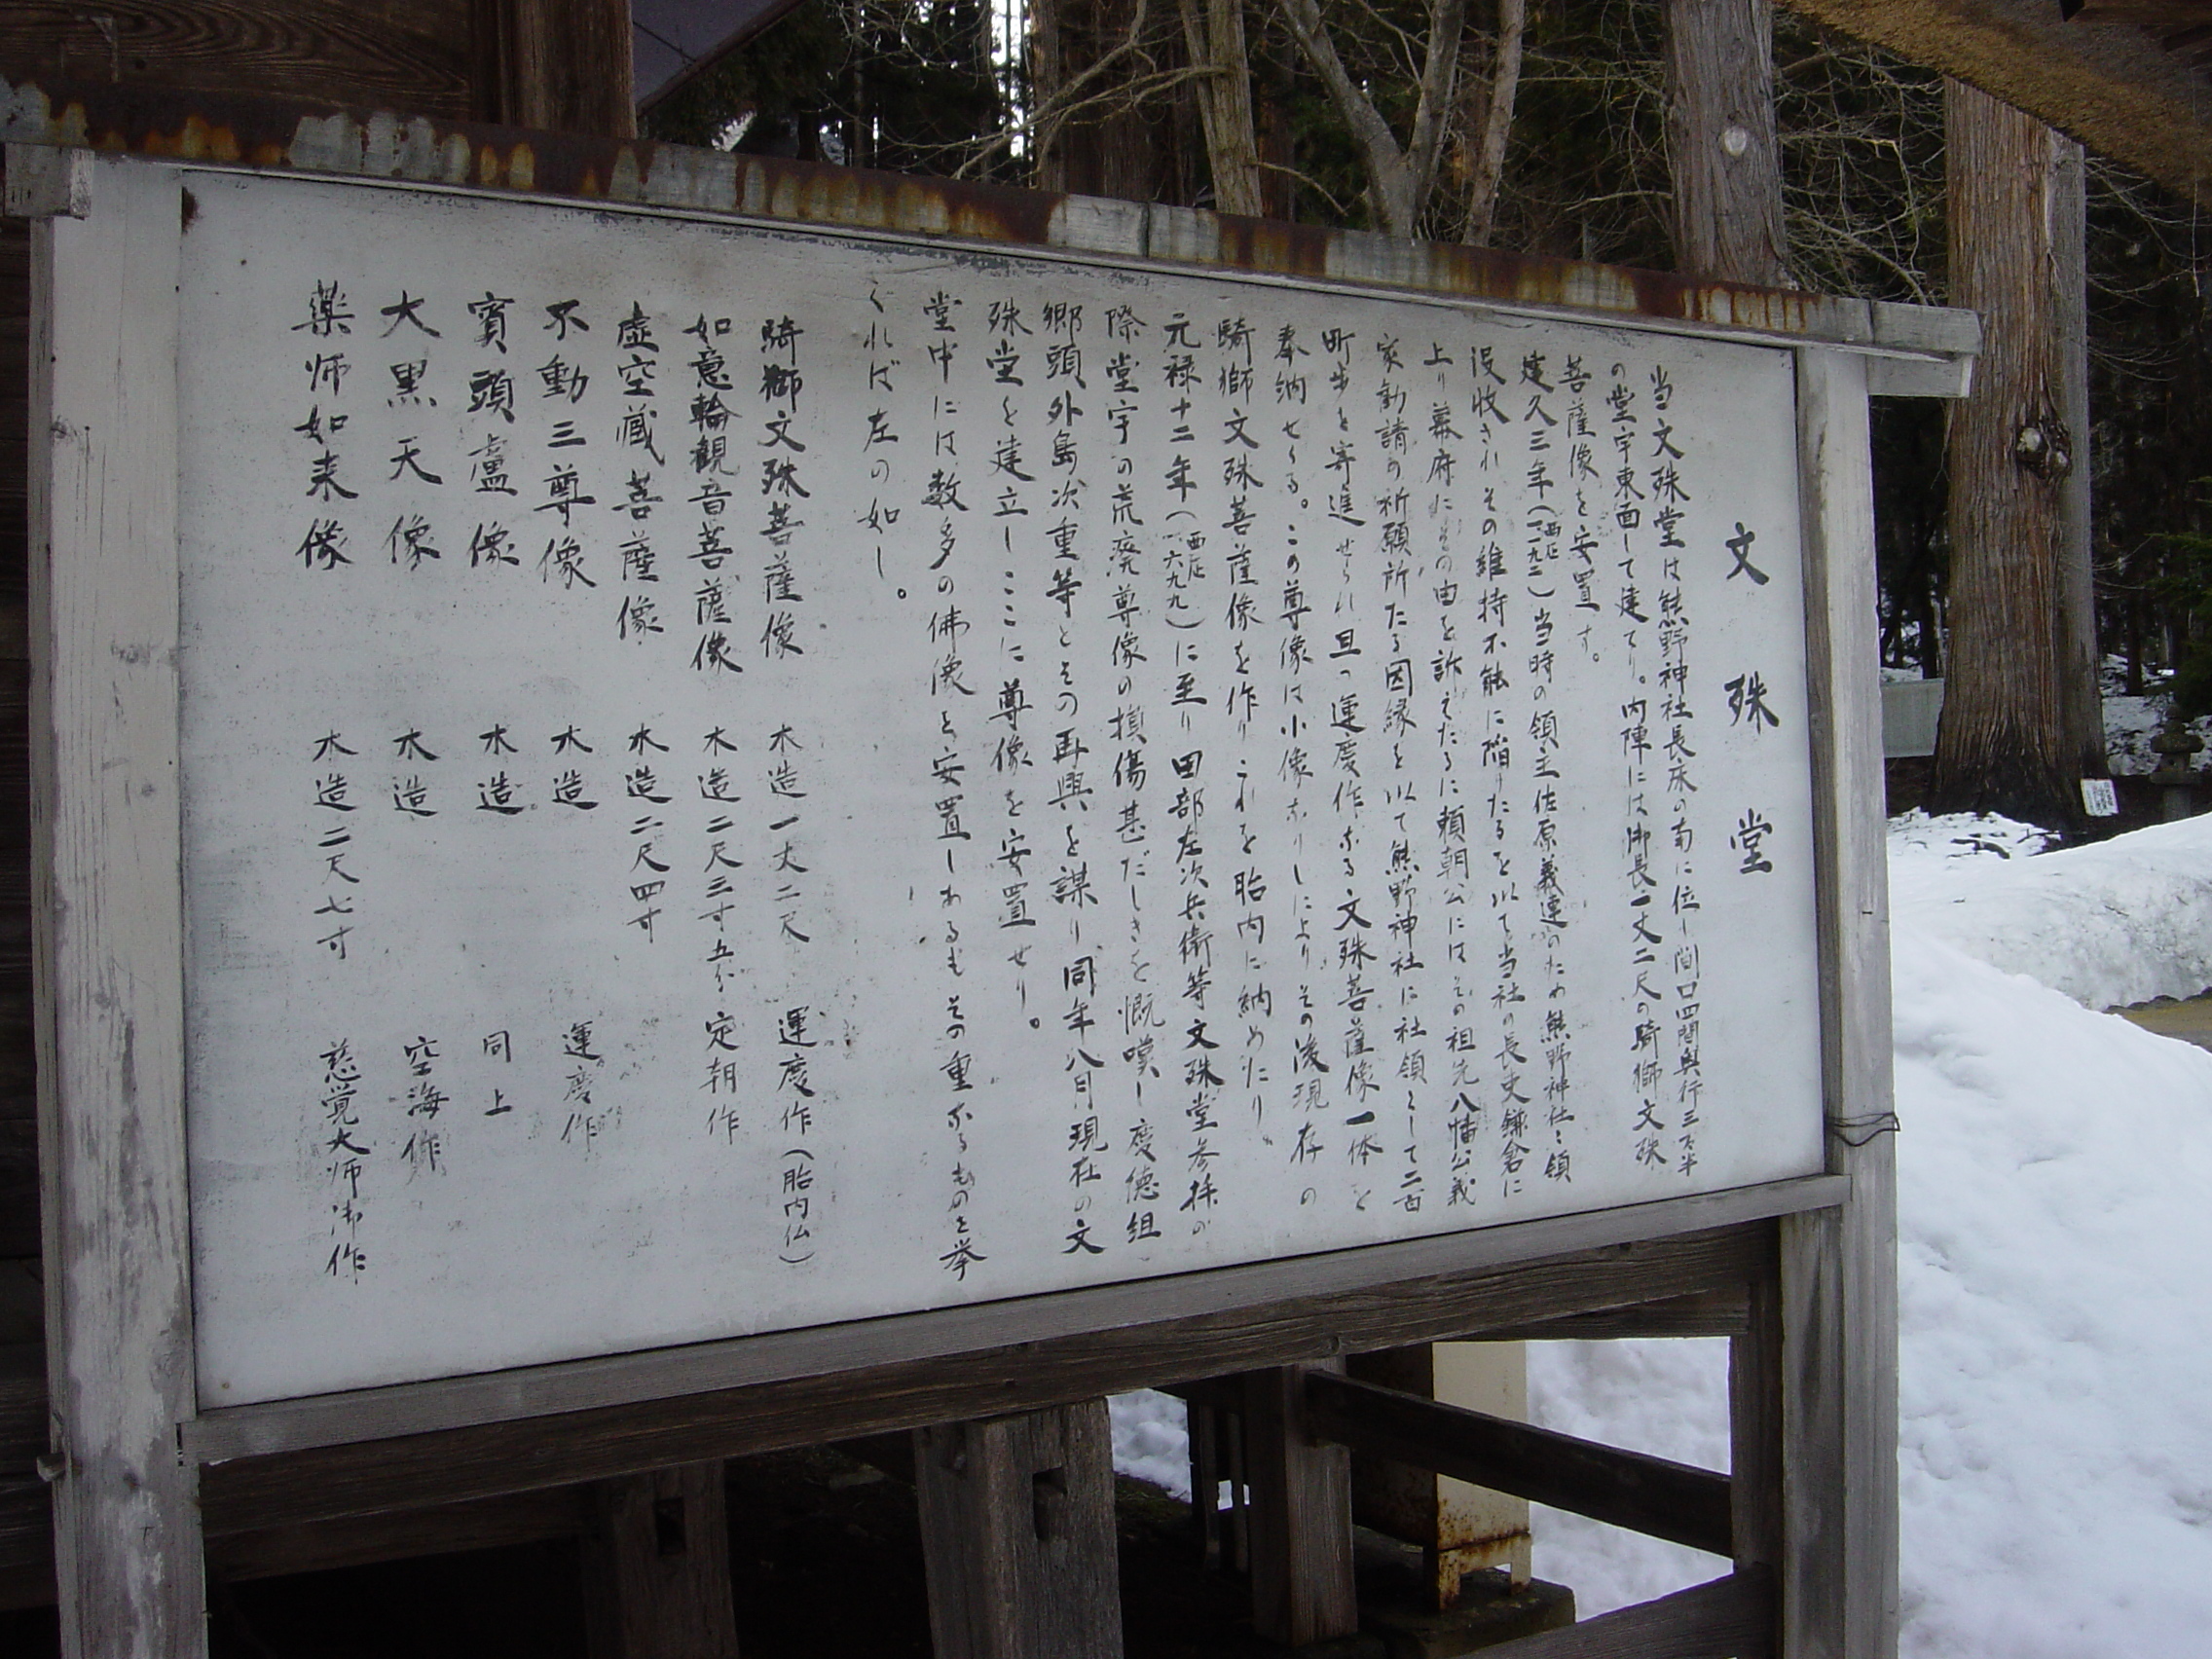 文殊堂
当文殊堂は熊野神社長床の南に位し間口四間奥行三間半
の堂宇東面して建てり。内陣には御長一丈二尺の騎獅文殊
菩薩像を安置す。
建久三年(西歴一一九二)当時の領主佐原義連のため熊野神社々領
没収されその維持不能に陥りたるを以て当社の長吏鎌倉に
上り幕府にその由を訴えたるに頼朝公にはその祖先八幡公義
家勧請の祈願所たる因縁を以て熊野神社に社領として二百
町歩を寄進せられ且つ運慶作なる文殊菩薩像一体を
奉納せらる。この尊像は小像なりしによりその後現存の
騎獅文殊菩薩像を作りこれを胎内に納めたり。
元禄十二年(西歴一六九九)に至り田部左次兵衛等文殊堂参拝の
際堂宇の荒廃尊像の損傷甚だしきを慨嘆し慶徳組
郷頭外島次重等とその再興を謀り同年八月現在の文
殊堂を建立しここに尊像を安置せり。
堂中には数多の佛像を安置しあるもその重なるものを挙
ぐれば左の如し。
騎獅文殊菩薩像 木造一丈二尺 運慶作(胎内仏)
如意輪観音菩薩像 木造二尺三寸五分 定朝作
虚空蔵菩薩像 木造二尺四寸
不動三尊像 木造 運慶作
賓頭盧像 木造 同上
大黒天像 木造 空海作
薬师如来像 木造二尺七寸 慈覚大师御作